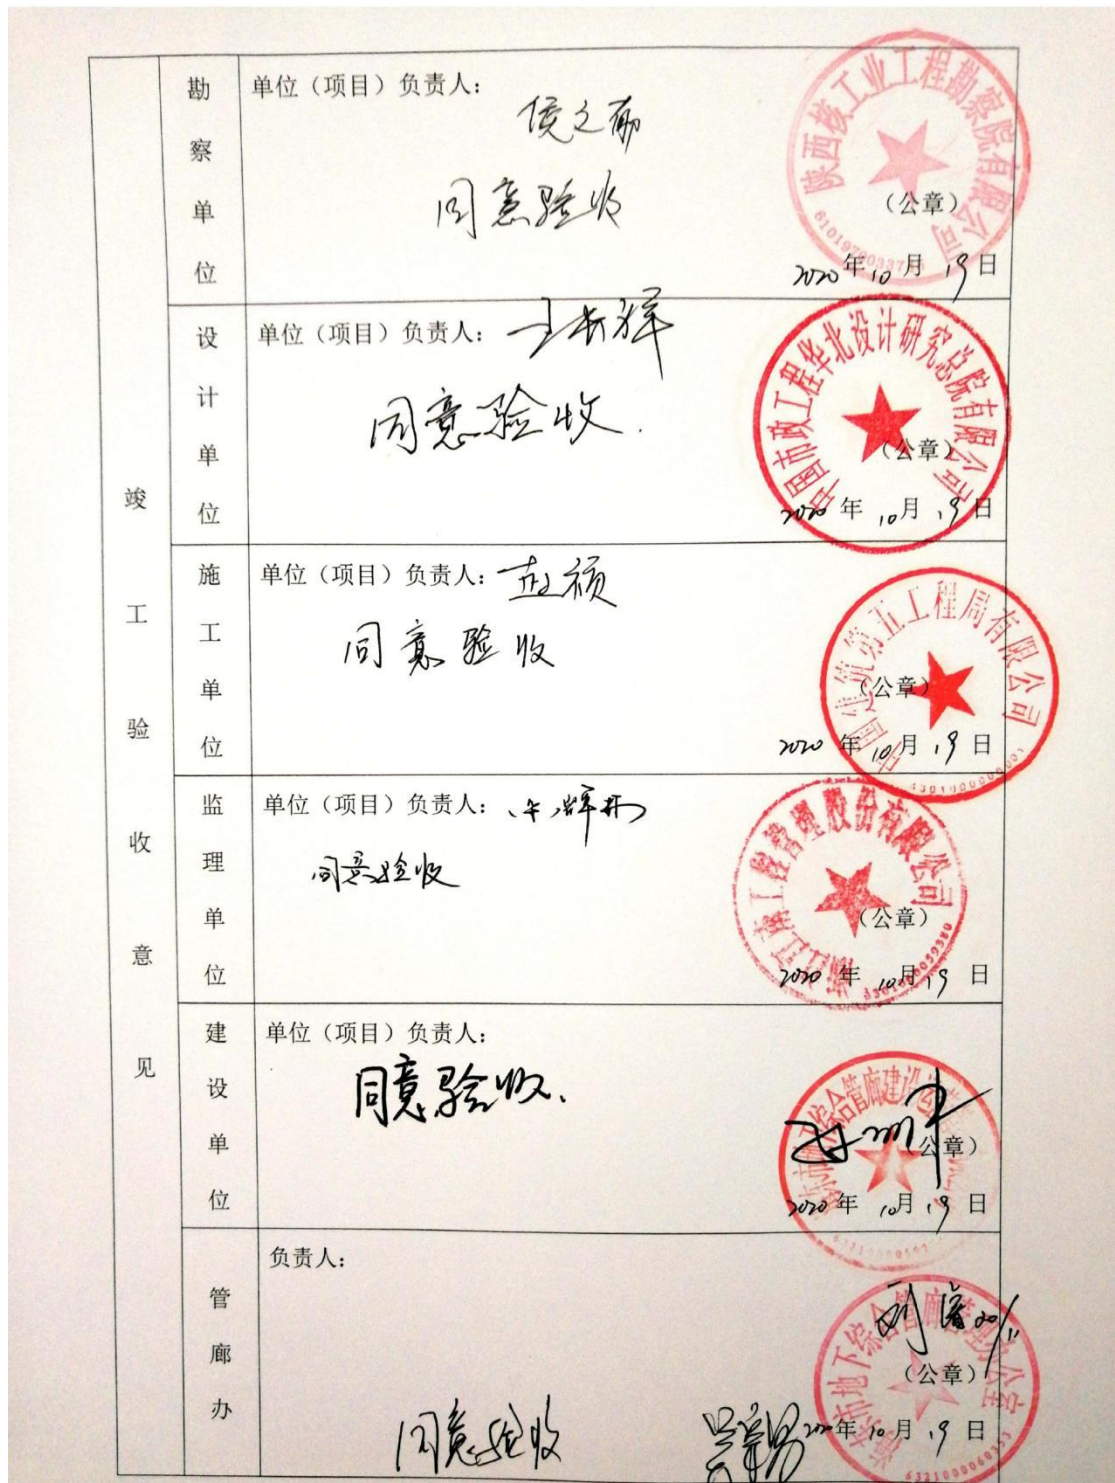 竣工验收意见
勘察单位
单位（项目）负责人：
同意验收
陕西核工业工程勘察院有限公司
（公章）
2020年10月19日
设计单位
单位（项目）负责人：
同意验收.
中国市政工程华北设计研究总院有限公司
（公章）
2020年10月19日
施工单位
单位（项目）负责人：
同意验收
中国建筑第五工程局有限公司
（公章）
2020年10月19日
监理单位
单位（项目）负责人：
同意验收
浙江江南工程管理股份有限公司
3301000059380
（公章）
2020年10月19日
建设单位
单位（项目）负责人：
同意验收.
公章）
2020年10月19日
管廊办
负责人：
海东市地下综合管廊管理办公室
6321000060353
（公章）
同意验收
2020年10月19日